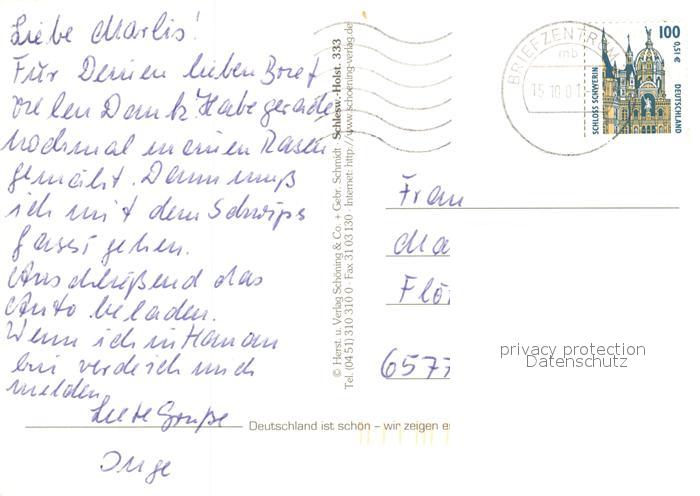 Liebe Marlis!
Für Deinen lieben Brief
vielen Dank. Habe gerade
nochmal meinen Rasen
gemäht. Dann muß
ich mit dem Schwips
Gassi gehen.
Anschließend das
Auto beladen.
Wenn ich in Hanau
bin werde ich mich
melden.
Liebe Grüße
Inge
Deutschland ist schön – wir zeigen es
© Herst. u. Verlag Schöning & Co. + Gebr. Schmidt · Schlesw.-Holst. 333
Tel. (04 51) 310 310 0 · Fax 31 03 130 · Internet: http://www.schoening-verlag.de
BRIEFZENTRUM
mb
15.10.01
100
0,51 €
SCHLOSS SCHWERIN
DEUTSCHLAND
Frau
Ma
Flö
6577
privacy protection
Datenschutz